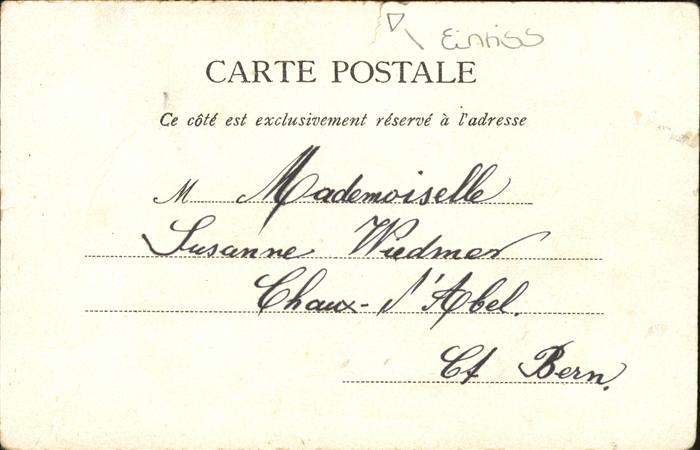 Einriss
CARTE POSTALE
Ce côté est exclusivement réservé à l'adresse
M Mademoiselle
Susanne Wiedmer
Chaux-d'Abel.
Ct Bern.